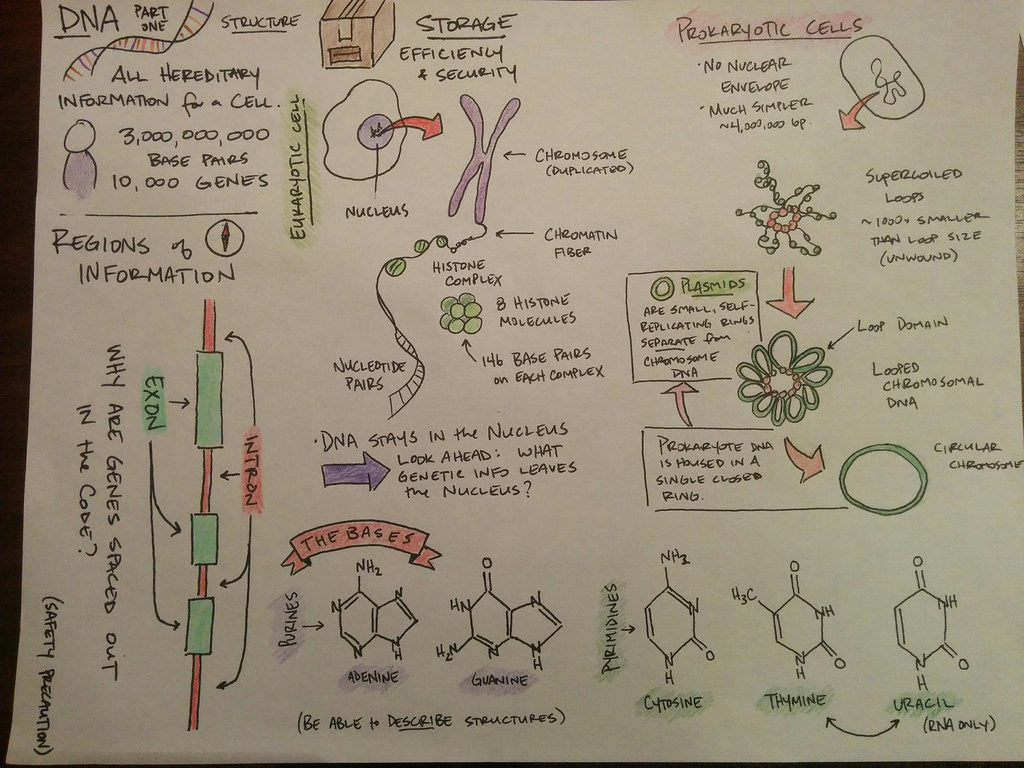 DNA PART ONE
STRUCTURE
ALL HEREDITARY
INFORMATION for a CELL.
3,000,000,000
BASE PAIRS
10,000 GENES
REGIONS of
INFORMATION
EXON
INTRON
WHY ARE GENES SPACED OUT
IN the CODE?
(SAFETY PRECAUTION)
STORAGE
EFFICIENCY
& SECURITY
EUKARYOTIC CELL
NUCLEUS
CHROMOSOME
(DUPLICATED)
CHROMATIN
FIBER
HISTONE
COMPLEX
8 HISTONE
MOLECULES
146 BASE PAIRS
on EACH COMPLEX
NUCLEOTIDE
PAIRS
• DNA STAYS IN the NUCLEUS
LOOK AHEAD: WHAT
GENETIC INFO LEAVES
the NUCLEUS?
PROKARYOTIC CELLS
• NO NUCLEAR
ENVELOPE
• MUCH SIMPLER
~4,000,000 bp.
SUPERCOILED
LOOPS
~1000x SMALLER
THAN LOOP SIZE
(UNWOUND)
PLASMIDS
ARE SMALL, SELF-
REPLICATING RINGS
SEPARATE from
CHROMOSOME
DNA
LOOP DOMAIN
LOOPED
CHROMOSOMAL
DNA
PROKARYOTE DNA
IS HOUSED IN A
SINGLE CLOSED
RING.
CIRCULAR
CHROMOSOME
THE BASES
PURINES
NH₂
N
N
N
N
H
ADENINE
O
HN
H₂N
N
N
N
H
GUANINE
(BE ABLE to DESCRIBE STRUCTURES)
PYRIMIDINES
NH₂
N
O
N
H
CYTOSINE
O
H₃C
NH
O
N
H
THYMINE
O
NH
O
N
H
URACIL
(RNA ONLY)